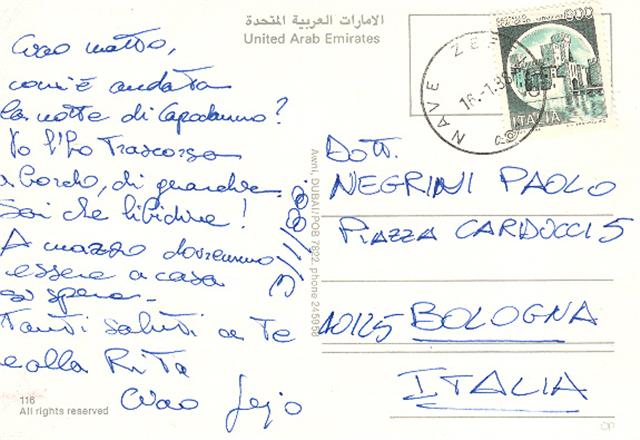 الامارات العربية المتحدة
United Arab Emirates
Ciao matto,
com'è andata
la notte di Capodanno?
Io l'ho trascorsa
a bordo, di guardia.
Sai che libidine!
A marzo dovremmo
essere a casa
si spera.
Tanti saluti a te
e alla Rita
Ciao
116
All rights reserved
Awni, DUBAI/POB 7822, phone 245958
600
ITALIA
NAVE ZE
16.-1.88
Dott.
NEGRINI PAOLO
PIAZZA CARDUCCI 5
40125 BOLOGNA
ITALIA